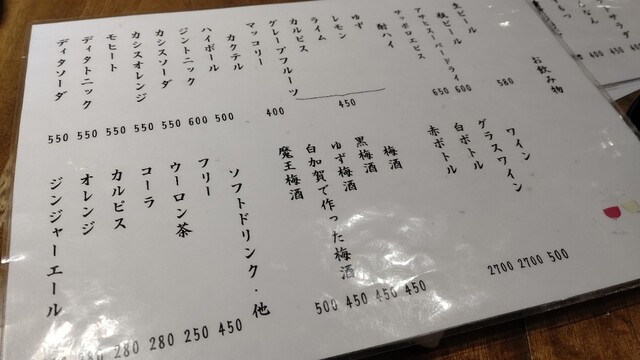 お飲み物
生ビール 580
瓶ビール
アサヒスーパードライ 600
サッポロエビス 650
酎ハイ
ゆず
レモン
ライム
カルピス
グレープフルーツ
450
マッコリー 400
カクテル
ハイボール 500
ジントニック 600
カシスソーダ 550
カシスオレンジ 550
モヒート 550
ディタトニック 550
ディタソーダ 550
ワイン
グラスワイン 500
白ボトル 2700
赤ボトル 2700
梅酒
梅酒 450
黒梅酒 450
ゆず梅酒 450
白加賀で作った梅酒
魔王梅酒 500
ソフトドリンク・他
フリー 450
ウーロン茶 250
コーラ 280
カルピス 280
オレンジ 280
ジンジャーエール